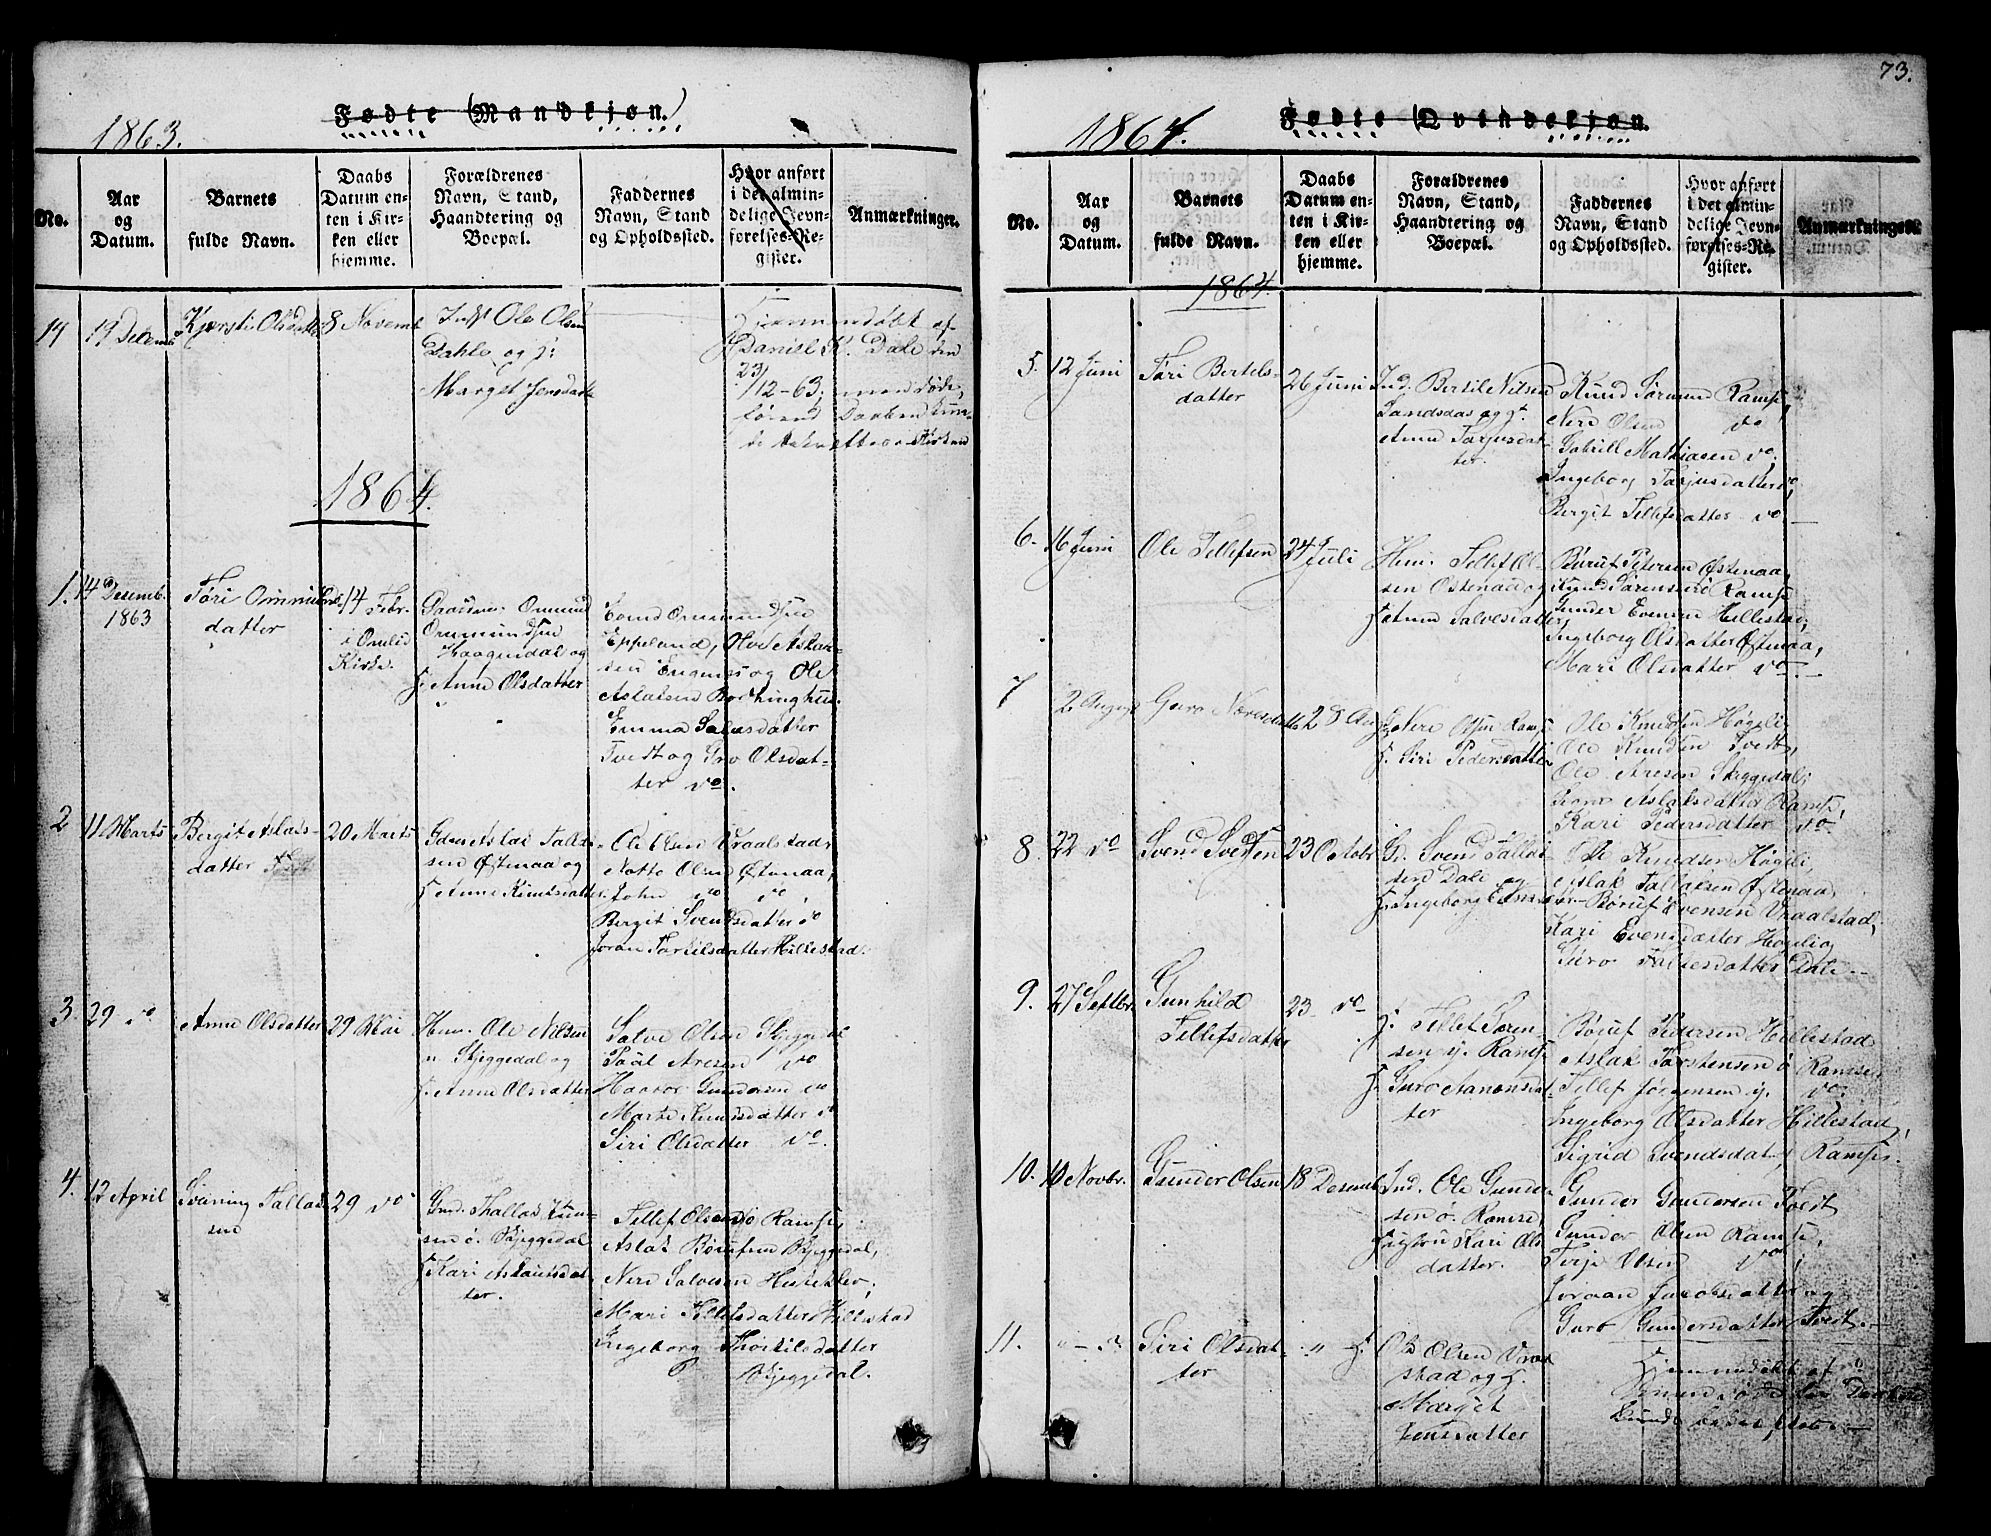 73.
1863.
Fødte (Mandkjøn.)
No.
Aar og Datum.
Barnets fulde Navn.
Daabs Datum enten i Kirken eller hjemme.
Forældrenes Navn, Stand, Haandtering og Boepæl.
Faddernes Navn, Stand og Opholdssted.
Hvor anført i det almindelige Jevnførelses-Register.
Anmærkninger.
14
19 Decemb
Kjersti Olsdatter
8 Novemb
Indst Ole Olsen
Dahle og h:
Marget Jensdatter
Hjemmedøbt af
Daniel K. Dale den
23/12-63, men døde,
førend Daaben kun-
de bekræftes i Kirken
1864.
1.
14 Desemb. 1863
Tøri Ommunds-
datter
14 Febr.
i Omlid
Kirke.
Gaardmd. Ommund
Ommundsen
Haagendal og
h. Anne Olsdatter
Ommundsen
Eppeland,
og Ole
Aslaksen
Emma
Tvedt og Gro Olsdat-
ter do.
2
11 Marts
Bergit Aslaks-
datter
20 Marts
Gdmd. Aslak Talle-
sen Østenaa og
h. Anne Knutsdatter
Ole Olsen Vraalstad,
Notto Olsen Østenaa,
John do do,
Bergit Svendsdatter do
Joran Tarkilsdatter Hillestad.
3
29 do
Anne Olsdatter
29 Mai
Huu. Ole Nilsen
n Skjeggedal og
h. Anne Olsdatter
Salve Olsen Skjeggedal
Paal Aresen do
Haavor Gundersen do
Marte Knutsdatter do
Siri Olsdatter do.
4.
12 April
Sveining Tallak-
sen
29 do
Gmd. Thallak Knu-
sen ø. Skjeggedal
h. Kari Aslaksdat-
ter.
Tellef Olsen ø Ramse,
Aslak Børufsen Skjeggedal,
Nere Salvesen Huseklev,
Mari Tellefsdatter Hillestad
Ingeborg Thorkilsdatter
Skjeggedal.
1864.
Fødte Qvindekjøn.
No.
Aar og Datum.
Barnets fulde Navn.
Daabs Datum enten i Kirken eller hjemme.
Forældrenes Navn, Stand, Haandtering og Boepæl.
Faddernes Navn, Stand og Opholdssted.
Hvor anført i det almindelige Jevnførelses-Register.
Anmærkninger.
1864.
5.
12 Juni
Tøri Bertels-
datter
26 Juni
Ind. Bertil Nilsen
Sandsdas og h.
Anne Tarjusdat-
ter.
Knud Sørmund Ramse,
Nere Olsen do
Gabrill Mathiasen do,
Ingeborg Tarjusdatter do,
Bergit Tellefsdatter do
6.
16 Juni
Ole Tellefsen
24 Juli
Huu. Tellef Ol-
sen Østenaa og
h. Anne Salvesdatter
Børuf Pedersen Østenaa,
Knud Sørensen ø Ramse
Gunder Evensen Hillestad,
Ingeborg Olsdatter Østenaa,
Mari Olsdatter do.
7
2 August
Guro Neresdatter
28 Aug
Nere Olsen Ramse
h. Siri Pedersdatter
Ole Knudsen Høgeli
Ole Knudsen Tvedt,
Ole Aresen Skjeggedal,
Aslaksdatter Ramse,
Kari Pedersdatter do
8.
22 do
Svend Svendsen
23 Octobr
Gd. Svend Tallak-
sen Dale og
h. Ingeborg Evensdatter
Ole Knudsen Høgeli
Aslak Tallaksen Østenaa,
Børuf Evensen Vraalstad,
Kari Evensdatter Høgeli og
Guro Tallaksdatter Dale.
9.
27 Septbr.
Gunhild
Tellefsdatter
23 do
Tellef Søren-
sen y. Ramse
h. Guro Aanonsdat-
ter
Børuf Pedersen Hillestad
Aslak Torstensen ø Ramse,
Tellef Jørgensen y. do.
Ingeborg Olsdatter Hillestad,
Sigrid Svendsdat. Ramse.
10.
10 Novbr.
Gunder Olsen
18 Desemb.
Ind. Ole Gunder-
sen ø. Ramse,
hustru Kari Ols-
datter.
Gunder Gundersen Tvedt
Gunder Olsen Ramse,
Terje Olsen do,
Joraan Jacobsdatter og
Guro Gundersdatter Tvedt.
11.
Siri Olsdat-
ter
Ole Olsen Vraal-
stad og h.
Marget
Jensdatter
Hjemmedøbt af
men døde før Daaben
kunde bekræftes.